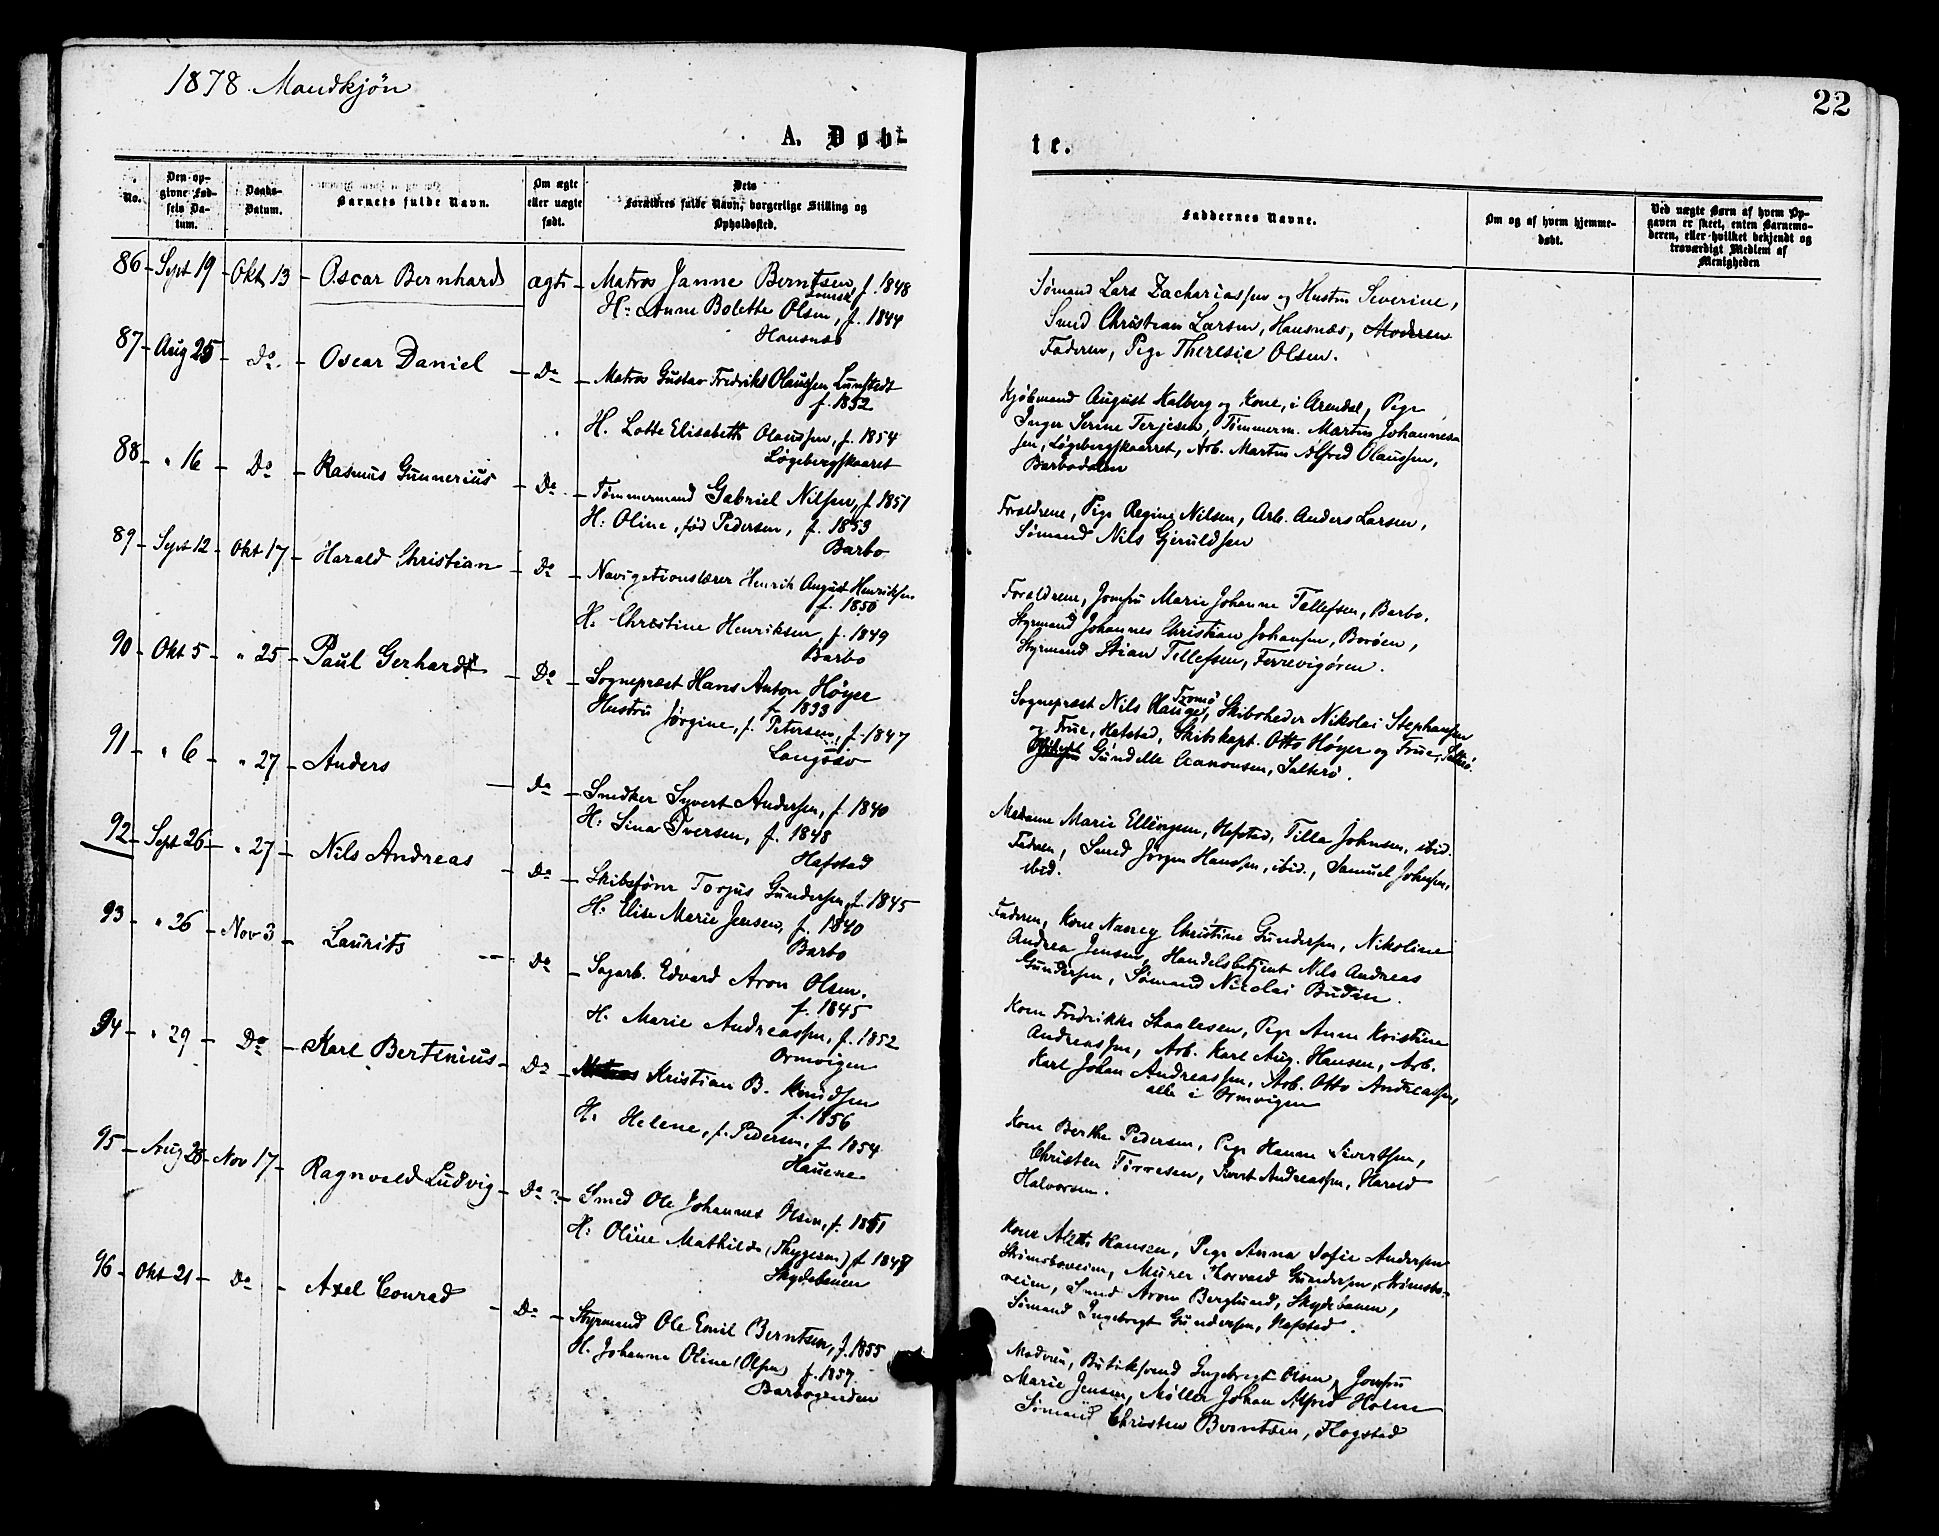 1878 Mandkjøn
22
A. Døbte.
No.
Den opgivne Fødsels Datum.
Daabs-Datum.
Barnets fulde Navn.
Om ægte eller uægte født.
Dets Forældres fulde Navn, borgerlige Stilling og Opholdssted.
Faddernes Navne.
Om og af hvem hjemmedøbt.
Ved uægte Børn af hvem Opgaven er skeet, enten Barnemoderen, eller hvilket bekjendt og troværdigt Medlem af Menigheden
86 Sept 19 Okt 13 Oscar Bernhard ægte Matros Janne Berntsen, f. 1848
H: Anne Bolette Olsen, f. 1844
Hausnæs
Sømand Lars Zachariassen og Hustru Severine,
Smed Christian Larsen, Hausnæs, Moderen
Faderen, Pige Theresie Olsen.
87 Aug 25 Do Oscar Daniel Do Matros Gustav Fredrikt Olaussen Lunstedt
f. 1852
H. Lotte Elisabeth Olaussen, f. 1854
Løgebergskaaret
Kjøbmand August Kalberg og Kone, i Arendal, Pige
Inger Serine Terjesen, Tømmerm. Martin Johannes-
sen, Løgebergskaaret, Arb. Martin Alfred Olaussen,
Barbodalen
88 " 16 Do Rasmus Gunnerius Do Tømmermand Gabriel Nilsen, f. 1851
H: Oline, fød Pedersen, f. 1853
Barbo
Forældrene, Pige Regine Nilsen, Arb. Anders Larsen,
Sømand Nils Gjeruldsen
89 Sept 12 Okt 17 Harald Christian Do Navigationslærer Henrik August Henriksen
f. 1850
H. Christine Henriksen, f. 1849
Barbo
Forældrene, Jomfru Marie Johanne Tellefsen, Barbo,
Styrmand Johannes Christian Johansen, Borøen,
Styrmand Stian Tellefsen, Ferrevigøren.
90 Okt 5 " 25 Paul Gerhard Do Sognepræst Hans Anton Høyer
f. 1833
Hustru Jørgine, f. Petersen, f. 1847
Langsæv
Sognepræst Nils Hauge, Tromø, Skibsheder Nikolai Stephansen
og Frue, Hafstad, Skibskapt. Otto Høyer og Frue, Salterø.
Gundelle Aanonsen, Salterø.
91 " 6 " 27 Anders Do Snedker Syvert Andersen, f. 1840
H: Sina Iversen, f. 1848
Hafstad
Madame Marie Ellingsen, Hafstad, Tilla Johnsen, ibid.
Faderen, Smed Jørgen Hanssen, ibid., Samuel Johnsen,
ibid.
92 Sept 26 " 27 Nils Andreas Do Skibsfører Torjus Gundersen, f. 1845
H: Elise Marie Jensen, f. 1840
Barbo
Faderen, Kone Nancy Christine Gundersen, Nikoline
Andrea Jensen, Handelsbetjent Nils Andreas
Gundersen, Sømand Nicolai Budin.
93 " 26 Nov 3 Laurits Do Sagarb. Edvard Aron Olsen.
f. 1845
H. Marie Andreassen, f. 1852
Ormvigen
Kone Fredrikke Staalesen, Pige Anne Kristine
Andreassen, Arb. Karl Aug. Hansen, Arb.
Karl Johan Andreassen, Arb. Otto Andreassen,
alle i Ormvigen
94 " 29 Do Karl Bertinius Do Matros Kristian B. Knudsen
f. 1856
H: Helene, f. Pedersen, f. 1854
Hauene
Kone Berthe Pedersen, Pige Hanne Sivertsen,
Christen Tørresen, Sivert Andreassen, Harald
Halvorsen.
95 Aug 28 Nov 17 Ragnvald Ludvig Do Smed Ole Johannes Olsen, f. 1851
H: Oline Mathilde (Thygesen) f 1847
Skydebanen
Kone Alette Hansen, Pige Anna Sofie Andersen
Strømsboveien, Murer Thorvald Gundersen, Strømsbo-
veien, Smed Aron Berglund, Skydebanen,
Sømand Ingebregt Gundersen, Hafsted.
96 Okt 21 Do Axel Conrad Do Styrmand Ole Emil Berntsen, f. 1855
H. Johanne Oline (Olsen) f. 1857.
Barbogreden
Moderen, Butiksvend Ingebregt Olsen, Jomfru
Marie Jensen, Møller Johan Alfred Holm
Sømand Christen Berntsen, Flogsted